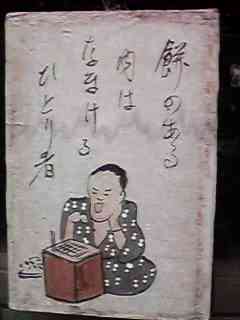 餅のある
内は
なまける
ひとり者